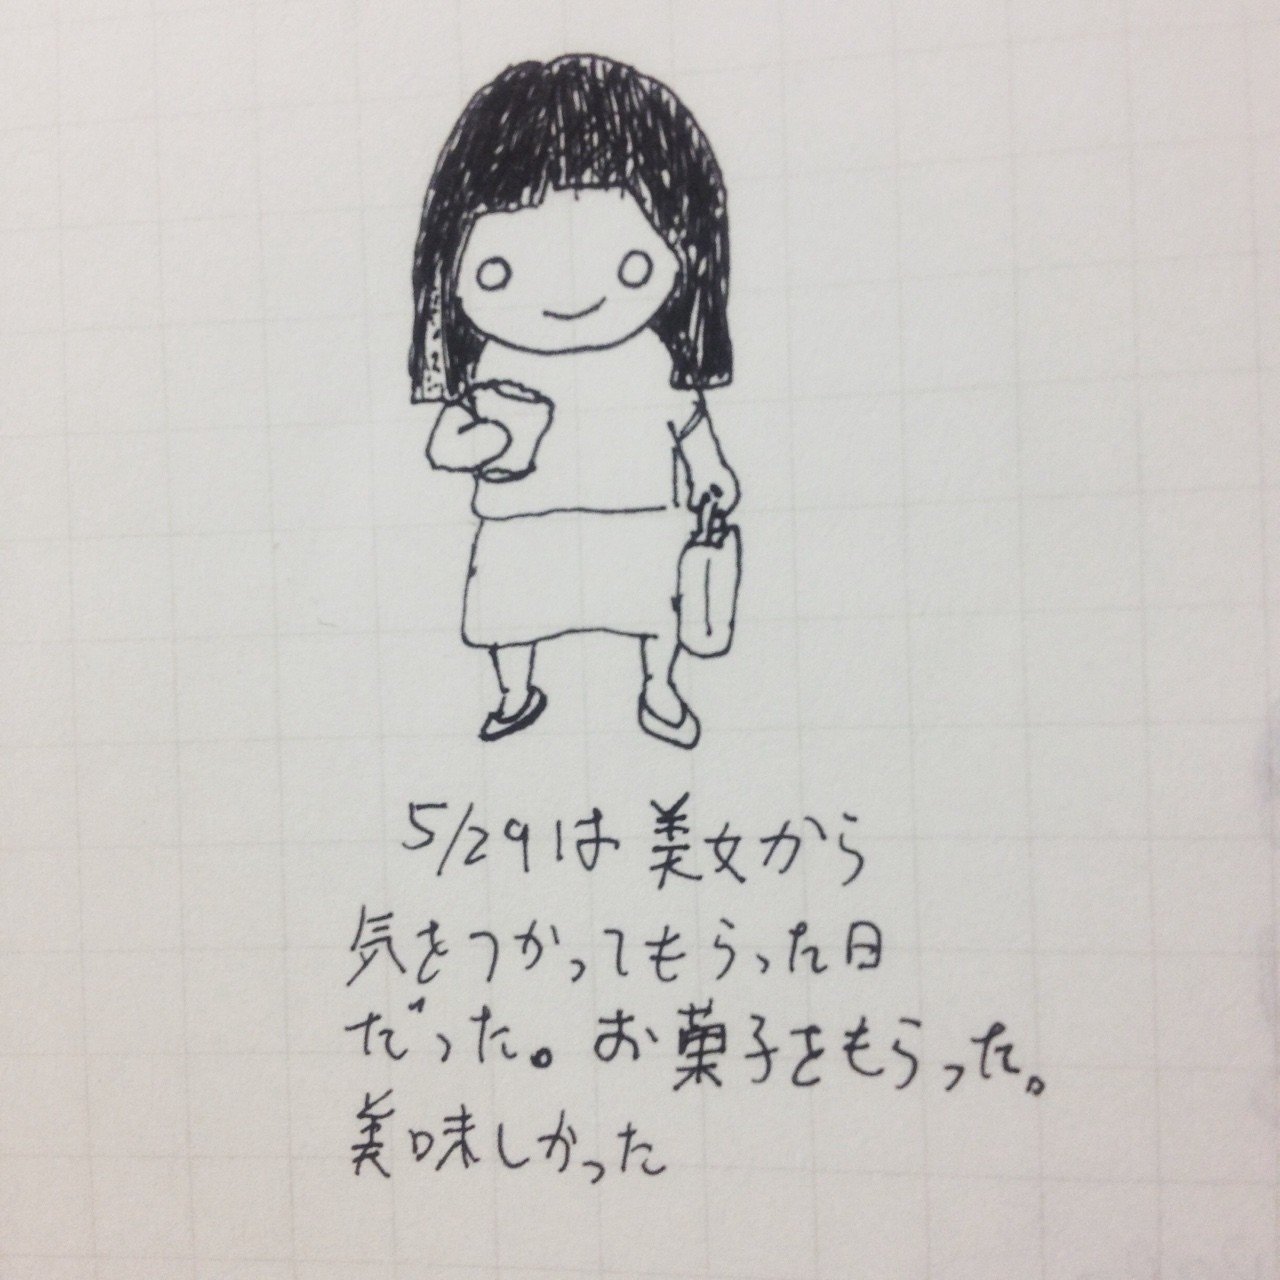 5/29は美女から
気をつかってもらった日
だった。お菓子をもらった。
美味しかった